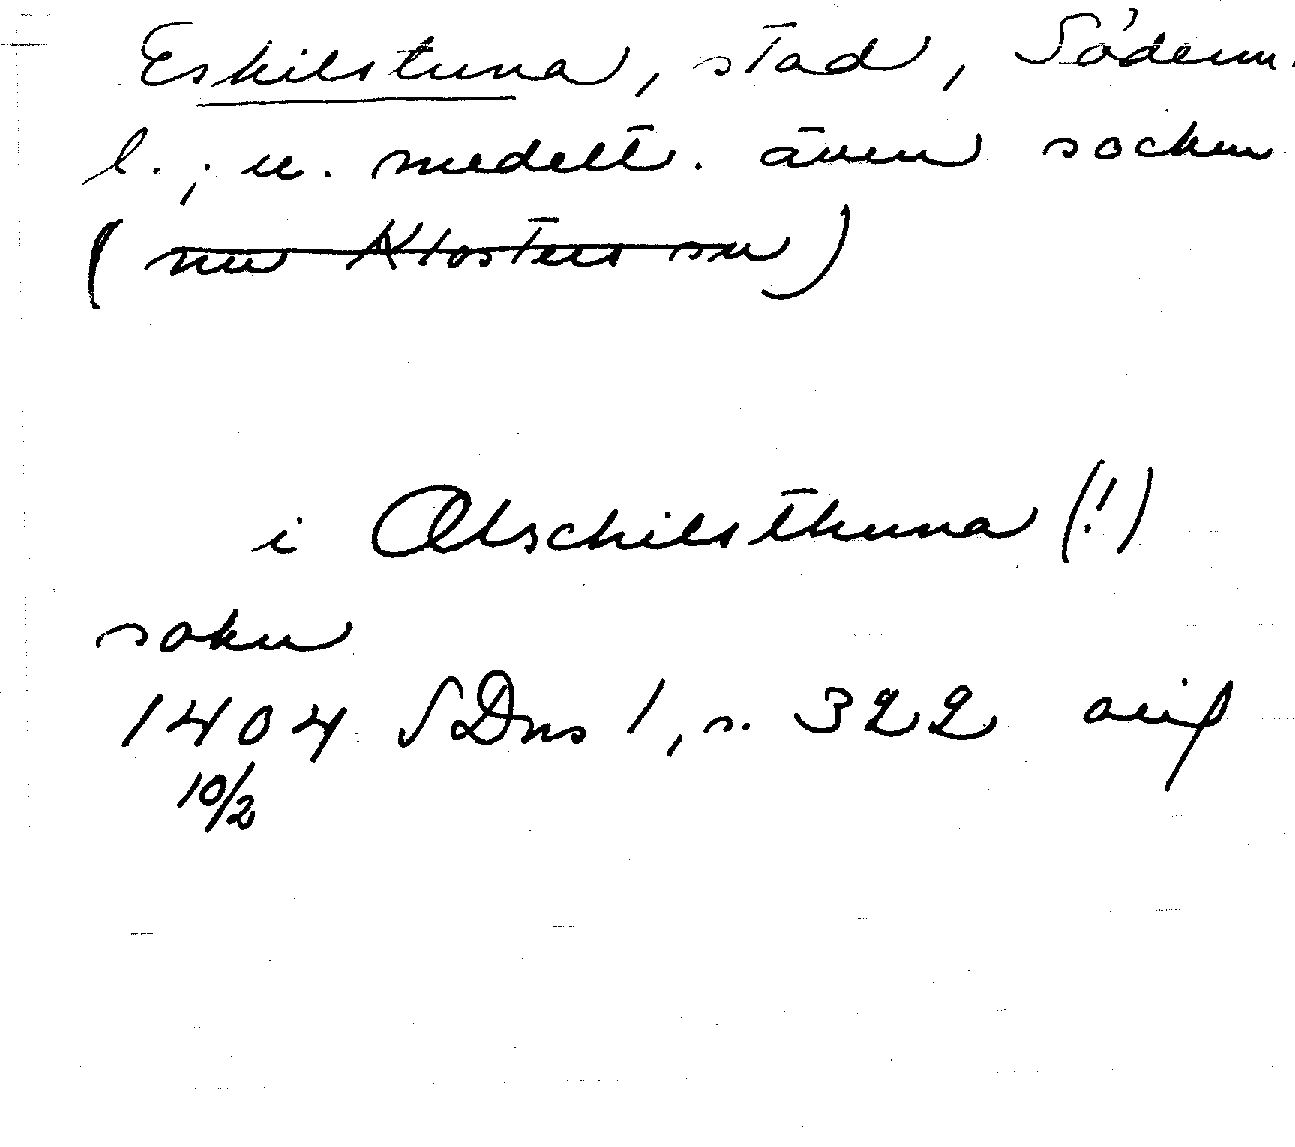 Eskilstuna, stad, Söderm.
l.; u. medelt. även socken
(nu Klosters sn)
i Abschilsthuna (!)
sokn
1404 SDns 1, s. 322 avs
10/2